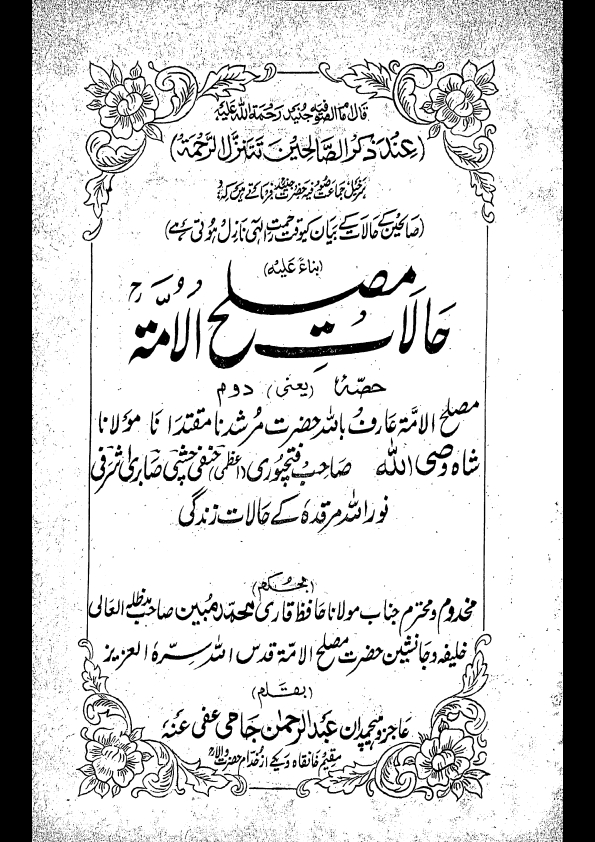 قال امام الصوفیہ جنید رحمۃ اللہ علیہ
(عِنْدَ ذِکْرِ الصَّالِحِیْنَ تَتَنَزَّلُ الرَّحْمَۃُ)
سرخیل جماعت صوفیہ حضرت جنید فرماتے ہیں کہ
(صالحین کے حالات کے بیان کیوقت رحمتِ الٰہی نازل ہوتی ہے)
(بناءً علیہ)
حالاتِ مصلح الامّۃ
حصہ (یعنی) دوم
مصلح الامّۃ عارف باللہ حضرت مرشدنا مقتدانا مولانا
شاہ وصی اللہ صاحب فتحپوری اعظمی حنفی چشتی صابری اشرفی
نور اللہ مرقدہٗ کے حالات زندگی
(بحکم)
مخدوم و محترم جناب مولانا حافظ قاری محمد مبین صاحب مدظلہ العالی
خلیفہ و جانشین حضرت مصلح الامّۃ قدس اللہ سرہٗ العزیز
(بقلم)
عاجز و ہیچمدان عبدالرحمٰن جامی عفی عنہٗ
مقیم خانقاہ ویکے از خدام حضرت والا